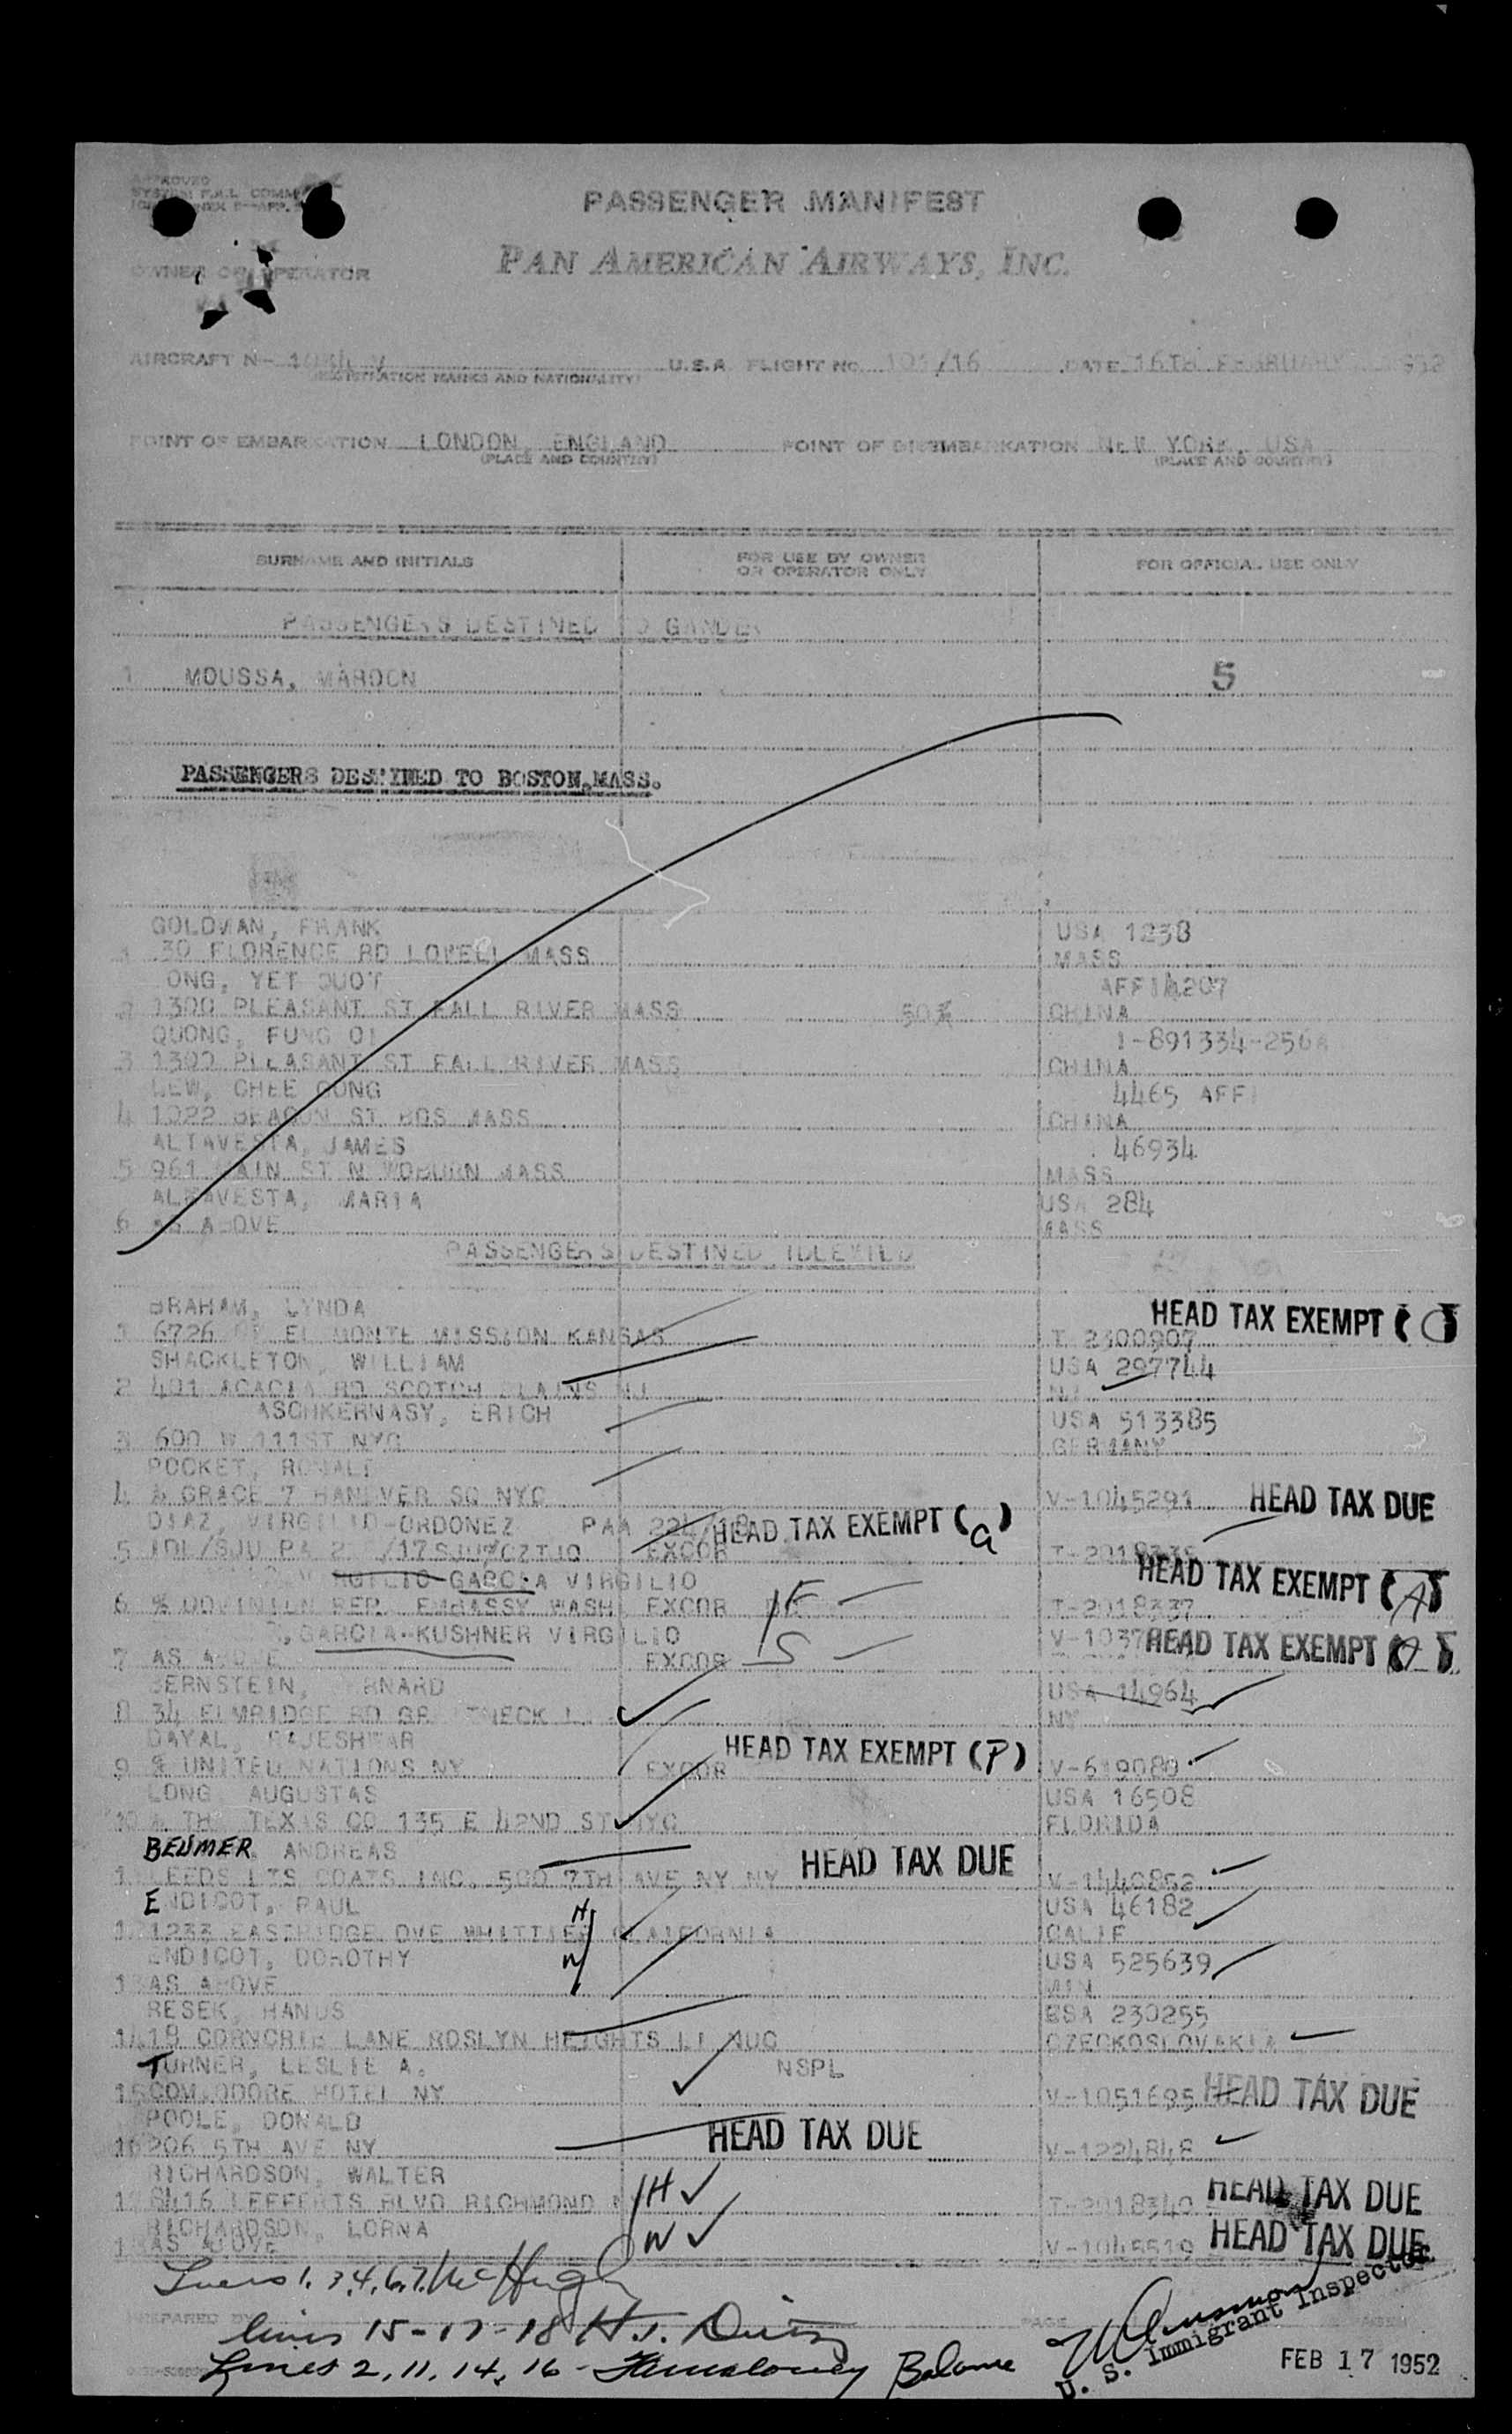 APPROVED
SYSTEM F.A.L. COMM
PASSENGER MANIFEST
OWNER OR OPERATOR
PAN AMERICAN AIRWAYS, INC.
AIRCRAFT N- U.S.A FLIGHT NO. 101/16 DATE 16TH FEBRUARY
(REGISTRATION MARKS AND NATIONALITY)
POINT OF EMBARKATION LONDON, ENGLAND POINT OF DISEMBARKATION NEW YORK, USA
(PLACE AND COUNTRY) (PLACE AND COUNTRY)
SURNAME AND INITIALS FOR USE BY OWNER OR OPERATOR ONLY FOR OFFICIAL USE ONLY
PASSENGERS DESTINED TO GANDER
1 MOUSSA, MAROON 5
PASSENGERS DESTINED TO BOSTON, MASS.
GOLDMAN, FRANK USA 1238
1 30 FLORENCE RD LOWELL MASS MASS
ONG, YET QUOT AFFI4207
2 1300 PLEASANT ST FALL RIVER MASS 50% CHINA
QUONG, FUNG OI 1-891334-256A
3 1300 PLEASANT ST FALL RIVER MASS CHINA
LEW, CHEE GONG 4465 AFFI
4 1022 BEACON ST BOS MASS CHINA
ALTAVESTA, JAMES 46934
5 961 MAIN ST N WOBURN MASS MASS
ALTAVESTA, MARIA USA 284
6 AS ABOVE MASS
PASSENGERS DESTINED IDLEWILD
BRAHAM, LYNDA HEAD TAX EXEMPT
1 6726 EL MONTE MISSION KANSAS T-2300907
SHACKLETON, WILLIAM USA 297744
2 401 ACACIA RD SCOTCH PLAINS NJ NJ
ASCHKERNASY, ERICH USA 513385
3 600 W 111ST NYC GERMANY
POCKET, RONALD
4 % GRACE 7 HANOVER SQ NYC V-1045291 HEAD TAX DUE
DIAZ, VIRGILIO-ORDONEZ PAA 224/18 HEAD TAX EXEMPT (a)
5 IDL/SJU PA /17 SJU/CZTJO EXCOR
GARCIA VIRGILIO HEAD TAX EXEMPT (A)
6 % DOMINION REP. EMBASSY WASH EXCOR F T-2018337
GARCIA-KUSHNER VIRGILIO V-1037 HEAD TAX EXEMPT
7 AS ABOVE EXCOR S
BERNSTEIN, BERNARD USA 14964
8 34 ELMRIDGE RD GREAT NECK L.I. NY
DAYAL, RAJESHWAR HEAD TAX EXEMPT (P)
9 % UNITED NATIONS NY EXCOR V-619080
LONG, AUGUSTAS USA 16508
10 % THE TEXAS CO 135 E 42ND ST NYC FLORIDA
BEUMER, ANDREAS HEAD TAX DUE
1 LEEDS LTS COATS INC. 500 7TH AVE NY NY V-1440862
ENDICOT, PAUL H USA 46182
1 1233 EASTRIDGE DVE WHITTIER CLAIFORNIA CALIF
ENDICOT, DOROTHY W USA 525639
1 AS ABOVE MIN
RESEK, HANUS USA 230255
14 18 CORNCRIB LANE ROSLYN HEIGHTS LI NUC CZECKOSLOVAKIA
TURNER, LESLIE A. NSPL
15 COMMODORE HOTEL NY V-1051695 HEAD TAX DUE
POOLE, DONALD HEAD TAX DUE
16 206 5TH AVE NY V-1224848
RICHARDSON, WALTER H HEAD TAX DUE
1 8416 LEFFERTS BLVD RICHMOND T-2018340
RICHARDSON, LORNA W HEAD TAX DUE
1 AS ABOVE V-1045519
Lines 1, 3,4,6,7. McHugh
PREPARED BY PAGE
lines 15-17-18 H.J.
Lines 2, 11, 14, 16 - Balance
U. S. Immigrant Inspector
FEB 17 1952